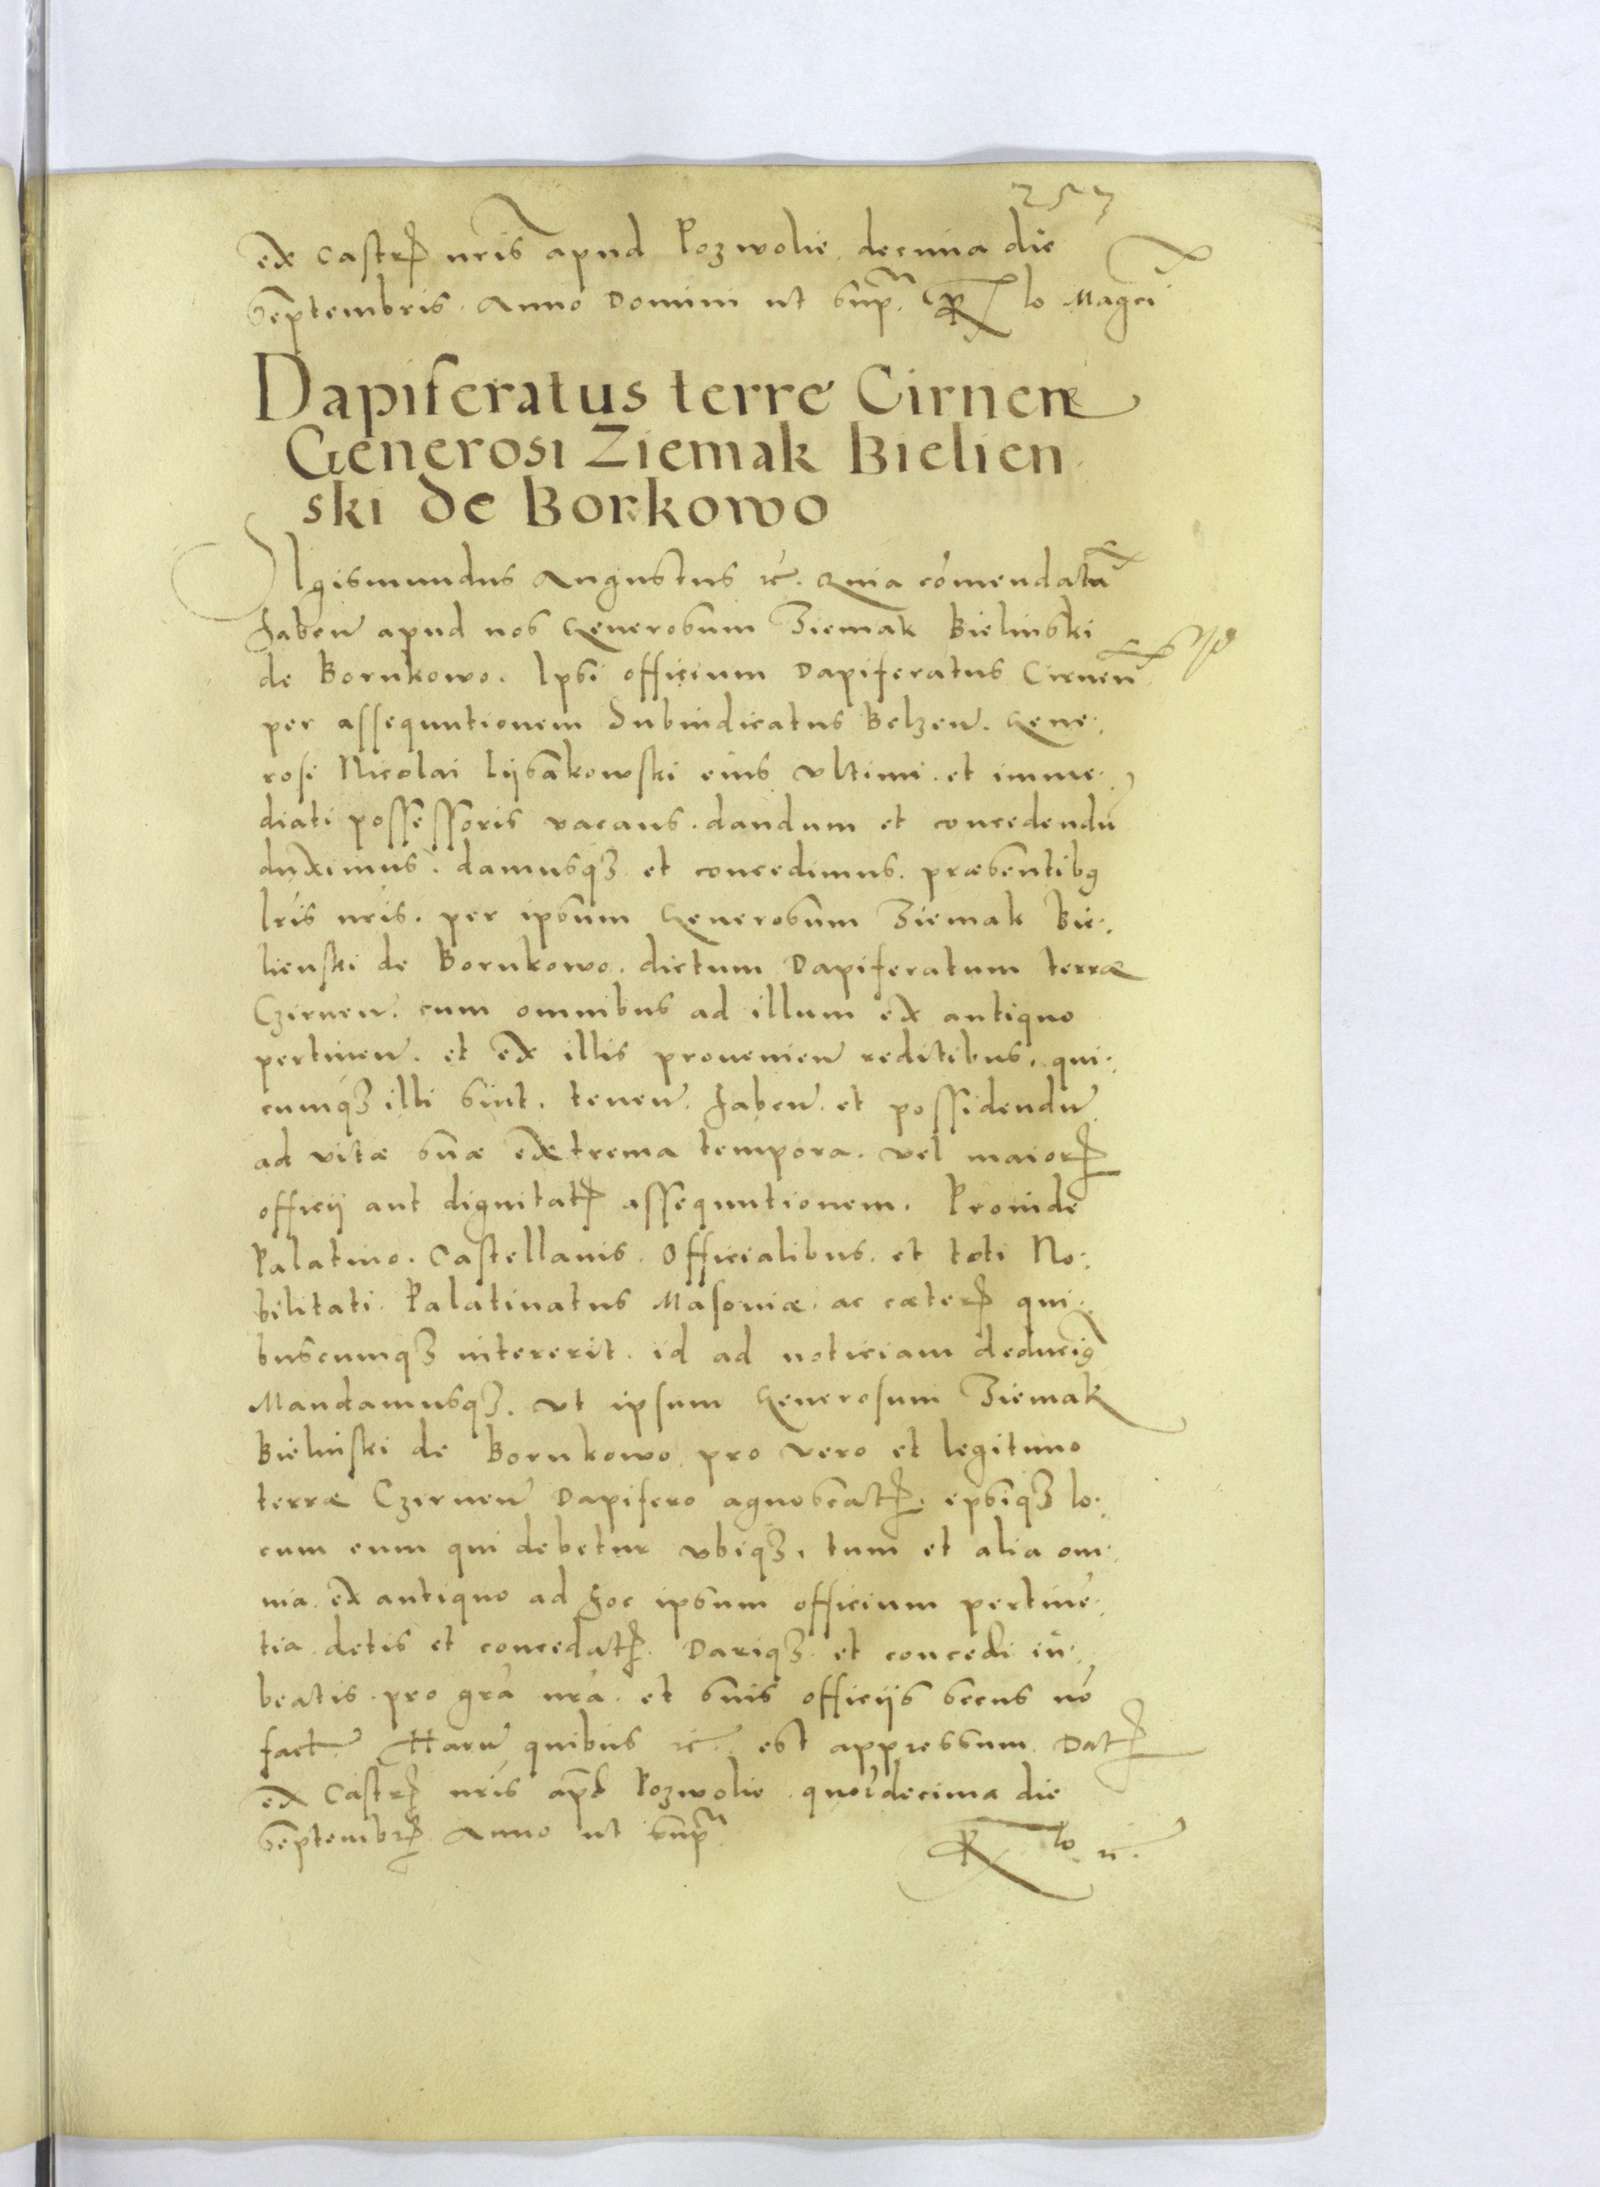 257
ex castris nris apud Pozwolie decima die
Septembris Anno Domini ut supra Rlo Magci
Dapiferatus terre Cirnen
Generosi Ziemak Bielien
ski de Borkowo
Sigismundus Augustus rc. Quia comendatu
haben apud nos Generosum Ziemak Bielinski
de Bornkowo. Ipsi officium Dapiferatus Cirnen
per assequutionem Subiudicatus Belzen. Gene:
rosi Nicolai Lijsakowski eius ultimi et imme:
diati possessoris vacans. dandum et concedendu
duximus. damusq3 et concedimus. præsentibq
lris nris. per ipsum Generosum Ziemak Bie:
lienski de Bornkowo. dictum Dapiferatum terræ
Czirnen. cum omnibus ad illum ex antiquo
pertinen. et ex illis provenien reditibus, qui:
cumq3 illi sint. tenen. haben. et possidendu
ad vitæ suæ extrema tempora. vel maioris
officij aut dignitatis assequutionem. Proinde
Palatino. Castellanis. Officialibus. et toti No:
bilitati Palatinatus Masoviæ. ac cæteris qui:
buscumq3 intererit. id ad noticiam deducimus
Mandamusq3. ut ipsum Generosum Ziemak
Bielinski de Bornkowo pro vero et legitimo
terræ Czirnen Dapifero agnoscatis. ipsiq3 lo:
cum eum qui debetur ubiq3, tum et alia om:
nia ex antiquo ad hoc ipsum officium pertine:
tia detis et concedatis. Dariq3 et concedi iu:
beatis pro gra nra. et suis officijs secus no
fact. Haru quibus rc. est appressum Datis
ex Castris nris apd Pozwolie quordecima die
Septembris Anno ut supra
Rlo rc.